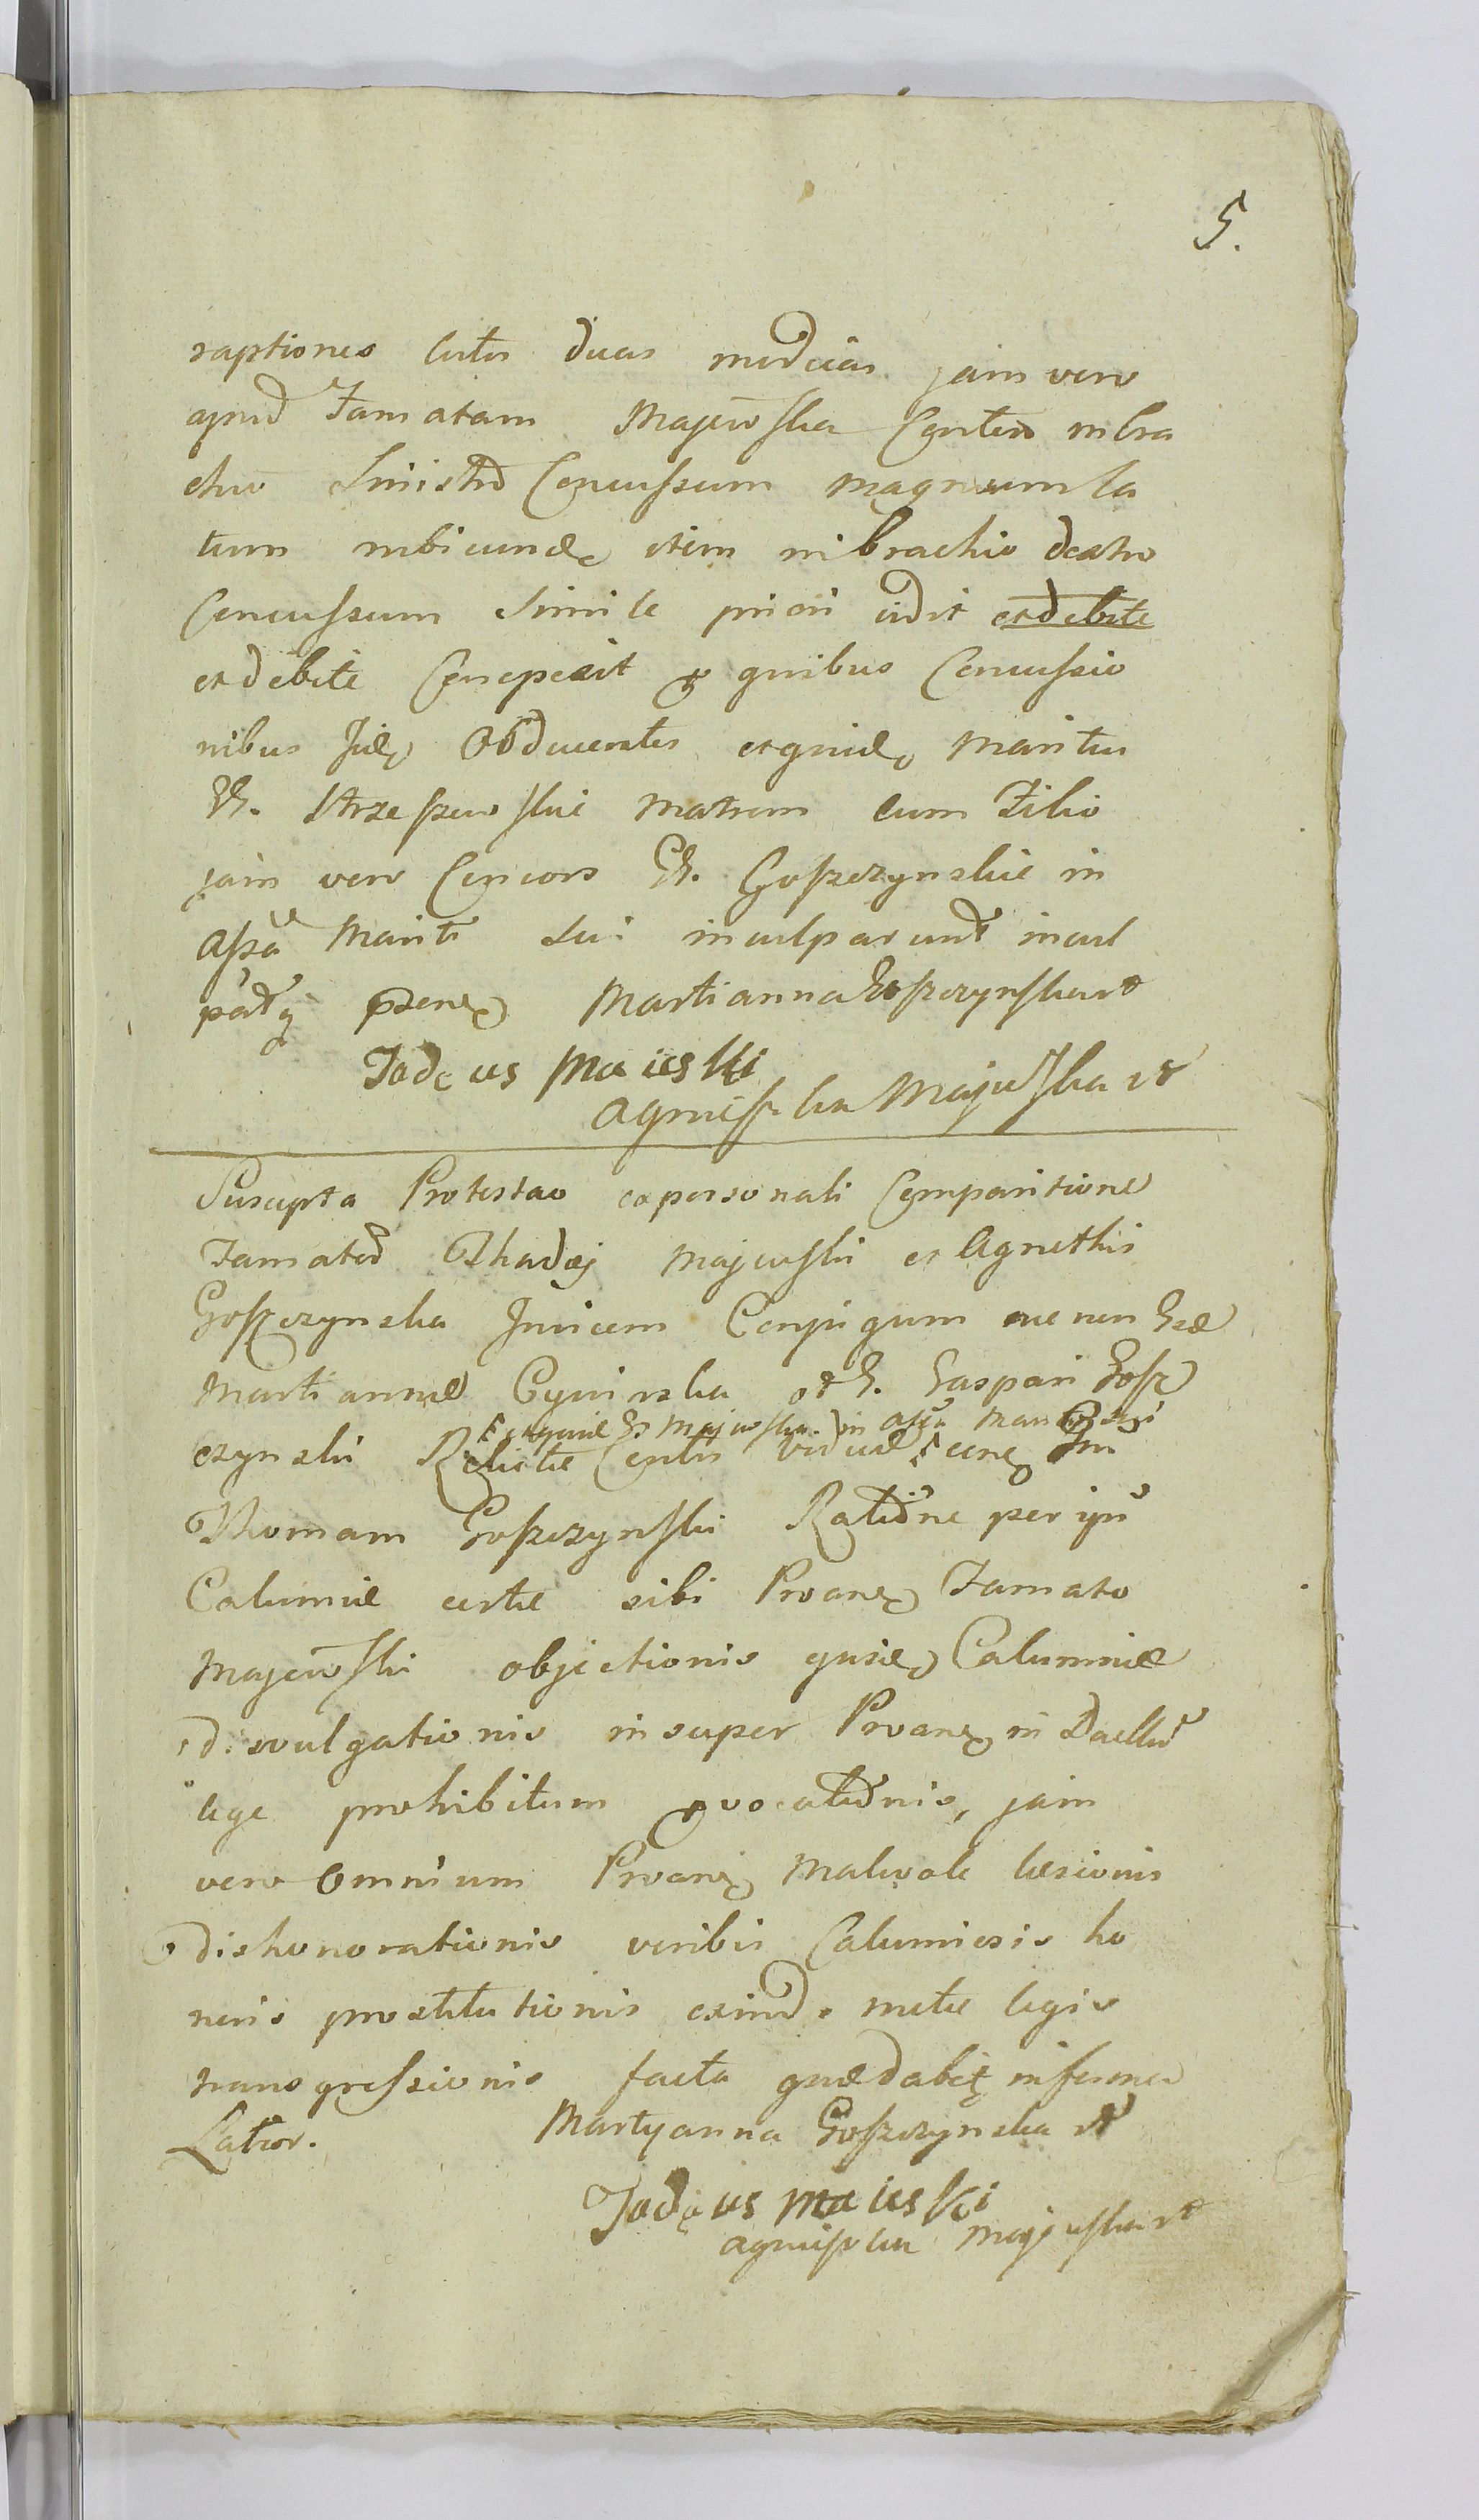 5.
raptiones cutis duas modicas jam vero
apud Famatam Majewska Conten in bra
chio Sinistro Concussum magnum la
tum rubicundq item in brachio dextro
Concussum Simile priori vidit et debite
et debite Conspexit pro quibus Concussio
nibus Obducentes et quidq Maritus
G. Strzeszewskie Matrem cum Filio
jam vero Consors G. Goszczynskie in
assa Mariti Sui inculparunt incul
patq pzenq Martianna Goszczynska
Tadeus Maieski
Agnieszka Majewska
Suscepta Protestao ex personali Comparitione
Famator Thadæj Majewski et Agnethis
Goszczynska Invicem Conjugum nec non
Martiannæ Cywinska et G. Gaspari Gosz
et quidem G. Majewska in assa Mariti sui
czynski Relictæ Contis viduæ cone
Thomam Goszczynski Ratione per ipsu
Calumniæ certæ sibi Proanq Famato
Majewski objectionis ejusdq Calumniæ
divulgationis insuper Proanq in Duellu
lege prohibitum provocationis, jam
vero Omnium Proanq Malevole læsionis
dishonorationis verbis Calumiosis ho
noris prostitutionis exind. metæ legis
transgressionis facta quæ dabitq inferius
Latior. Martyanna Goszczynska
Tadeus Maieski
agnieszka Majewska